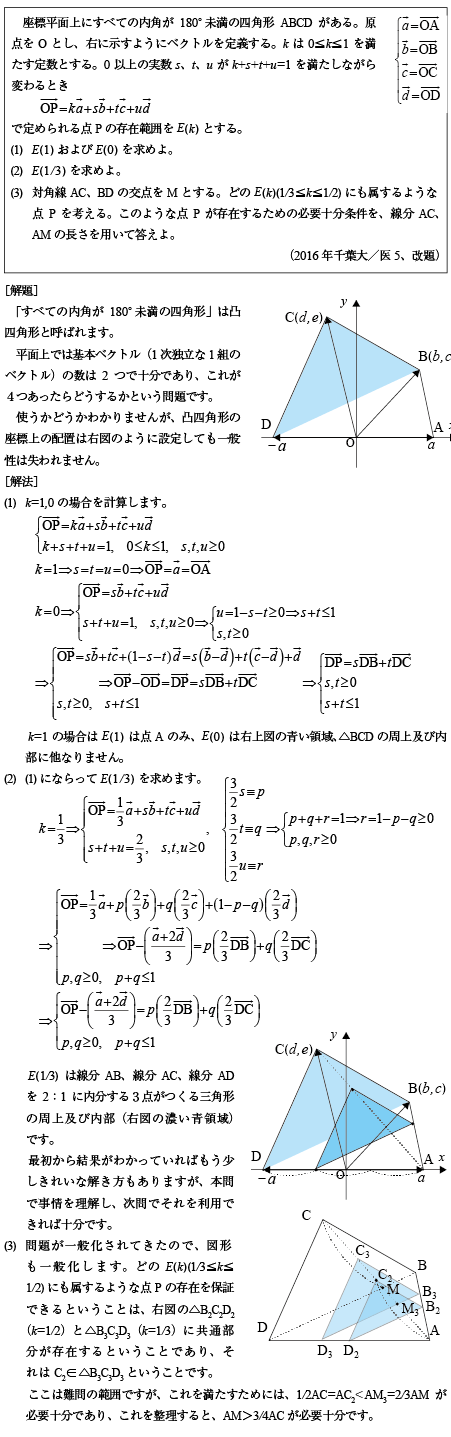 座標平面上にすべての内角が 180°未満の四角形 ABCD がある。原
点を O とし、右に示すようにベクトルを定義する。k は 0≦k≦1 を満
たす定数とする。0 以上の実数 s、t、u が k+s+t+u=1 を満たしながら
変わるとき
OP=ka+sb+tc+ud
で定められる点 P の存在範囲を E(k) とする。
a=OA
b=OB
c=OC
d=OD
(1) E(1) および E(0) を求めよ。
(2) E(1/3) を求めよ。
(3) 対角線 AC、BD の交点を M とする。どの E(k)(1/3≦k≦1/2) にも属するような
点 P を考える。このような点 P が存在するための必要十分条件を、線分 AC、
AM の長さを用いて答えよ。
(2016 年千葉大/医 5、改題)
[解題]
「すべての内角が 180°未満の四角形」は凸
四角形と呼ばれます。
平面上では基本ベクトル(1 次独立な 1 組の
ベクトル)の数は 2 つで十分であり、これが
4 つあったらどうするかという問題です。
使うかどうかわかりませんが、凸四角形の
座標上の配置は右図のように設定しても一般
性は失われません。
y
C(d,e)
B(b,c)
D
−a
O
A
a
x
[解法]
(1) k=1,0 の場合を計算します。
OP=ka+sb+tc+ud
k+s+t+u=1, 0≦k≦1, s,t,u≧0
k=1⇒s=t=u=0⇒OP=a=OA
k=0⇒ OP=sb+tc+ud
s+t+u=1, s,t,u≧0⇒ u=1−s−t≧0⇒s+t≦1
s,t≧0
⇒ OP=sb+tc+(1−s−t)d=s(b−d)+t(c−d)+d
⇒OP−OD=DP=sDB+tDC
s,t≧0, s+t≦1
⇒ DP=sDB+tDC
s,t≧0
s+t≦1
k=1 の場合は E(1) は点 A のみ、E(0) は右上図の青い領域、△BCD の周上及び内
部に他なりません。
(2) (1)にならって E(1/3) を求めます。
k=1/3⇒ OP=1/3a+sb+tc+ud
s+t+u=2/3, s,t,u≧0
, 3/2s≡p
3/2t≡q
3/2u≡r
⇒ p+q+r=1⇒r=1−p−q≧0
p,q,r≧0
⇒ OP=1/3a+p(2/3b)+q(2/3c)+(1−p−q)(2/3d)
⇒OP−(a+2d/3)=p(2/3DB)+q(2/3DC)
p,q≧0, p+q≦1
⇒ OP−(a+2d/3)=p(2/3DB)+q(2/3DC)
p,q≧0, p+q≦1
E(1/3) は線分 AB、線分 AC、線分 AD
を 2:1 に内分する 3 点がつくる三角形
の周上及び内部(右図の濃い青領域)
です。
最初から結果がわかっていればもう少
しきれいな解き方もありますが、本問
で事情を理解し、次問でそれを利用で
きれば十分です。
y
C(d,e)
B(b,c)
D
−a
O
A
a
x
(3) 問題が一般化されてきたので、図形
も一般化します。どの E(k)(1/3≦k≦
1/2) にも属するような点 P の存在を保証
できるということは、右図の△B2C2D2
(k=1/2) と△B3C3D3 (k=1/3) に共通部
分が存在するということであり、そ
れは C2∈△B3C3D3 ということです。
C
C3
B
C2
M
B3
M3
B2
D
D3
D2
A
ここは難問の範囲ですが、これを満たすためには、1/2AC=AC2<AM3=2/3AM が
必要十分であり、これを整理すると、AM>3/4AC が必要十分です。